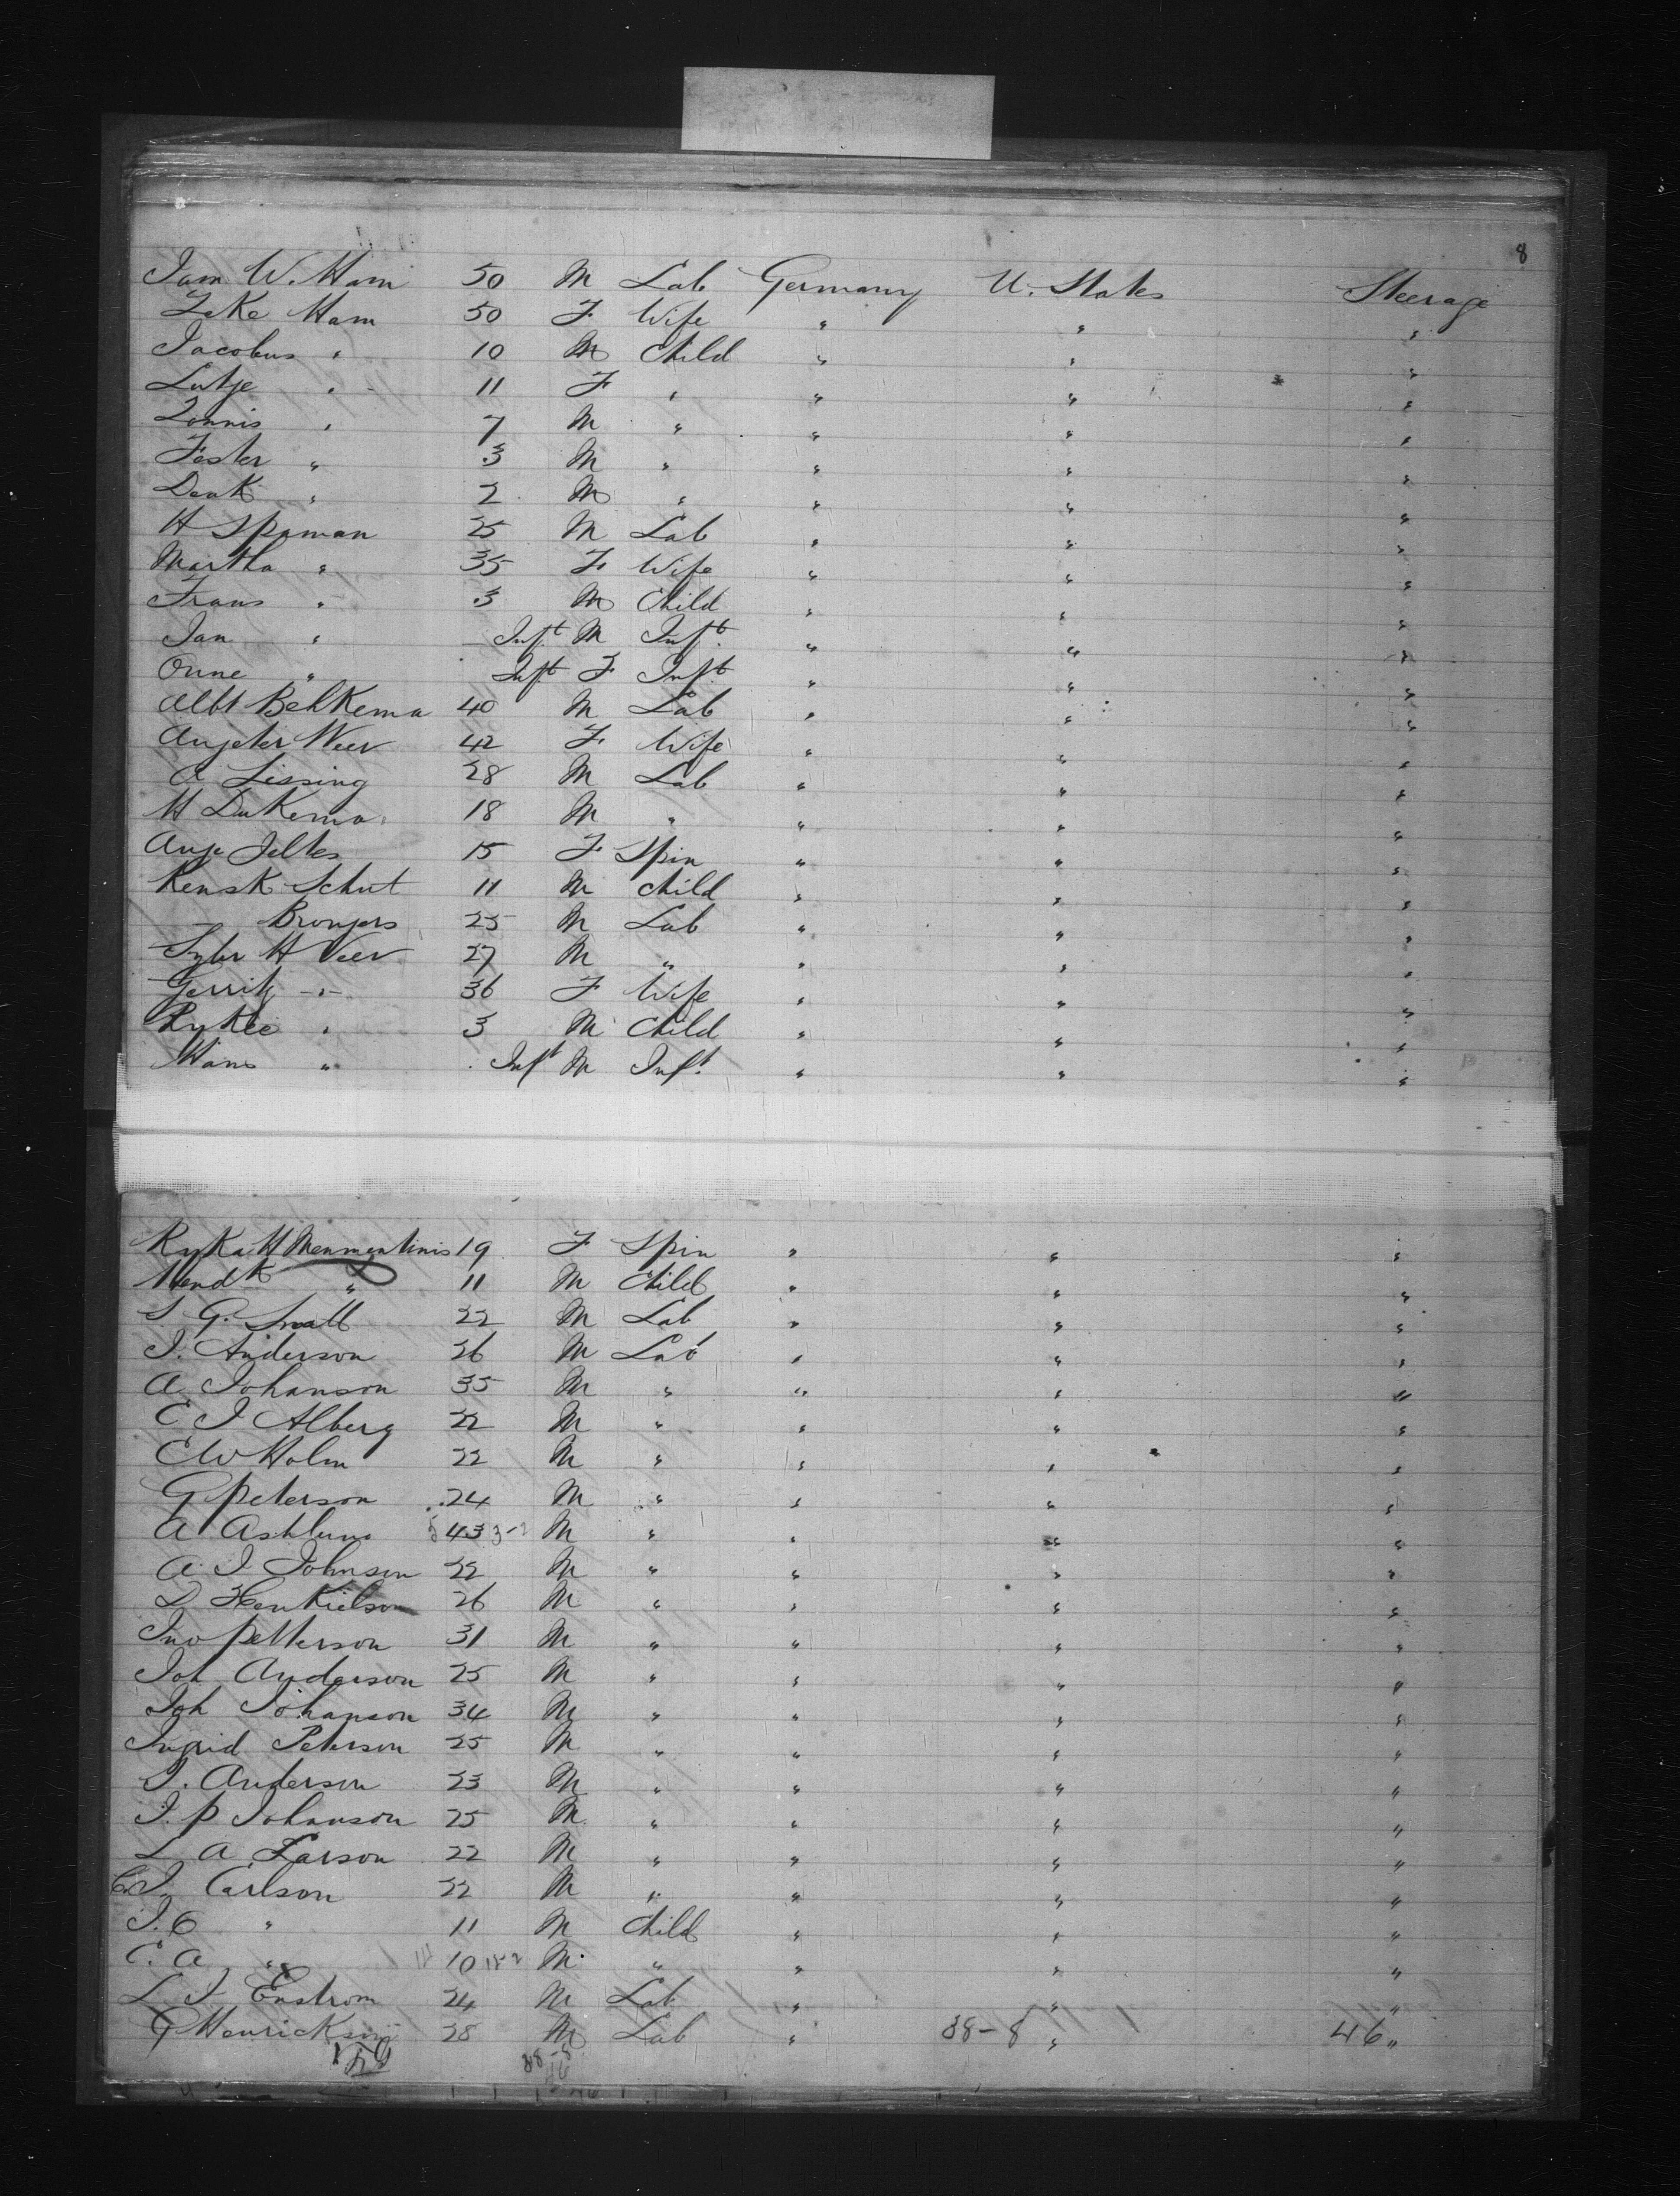 8
Jam W. Ham 50 M Lab Germany U. States Steerage
Zeke Ham 50 F Wife " " "
Jacobus " 10 M Child " " "
Lutje " 11 F " " " "
Tonnis " 7 M " " " "
Fester " 3 M " " " "
Derk " 2 M " " " "
H Spaman 25 M Lab " " "
Martha " 35 F Wife " " "
Frans " 3 M Child " " "
Jan " Inft M Inft " " "
Onne " Inft F Inft " " "
Albt BehKema 40 M Lab " " "
Angeter Weer 42 F Wife " " "
A Lissing 28 M Lab " " "
H DuKema 18 M " " " "
Auje Jeltes 15 F Spin " " "
Rensk Schut 11 M Child " " "
Bronjers 25 M Lab " " "
H Veer 27 M " " " "
Gerritj " 36 F Wife " " "
RyKee " 3 M Child " " "
Hans " Inft M Inft " " "
RyKa H 19 F Spin " " "
Hendk " 11 M Child " " "
S G. Snall 22 M Lab " " "
J. Anderson 26 M Lab " " "
A Johanson 35 M " " " "
E J Alberg 22 M " " " "
C W Holm 22 M " " " "
G Peterson 24 M " " " "
A Ashlund 43 M " " " "
A. J Johnson 22 M " " " "
D Henkielson 26 M " " " "
Jno Petterson 31 M " " " "
Joh Anderson 25 M " " " "
Joh Johanson 34 M " " " "
Ingrid Peterson 25 M " " " "
J. Anderson 23 M " " " "
J. P Johanson 25 M " " " "
L A Larson 22 M " " " "
C J. Carlson 22 M " " " "
J. C " 11 M Child " " "
C. A " 10 M " " " "
L J Enstrom 24 M Lab " " "
G Henrickson 28 M Lab " 38-8 " 46 "
38-8